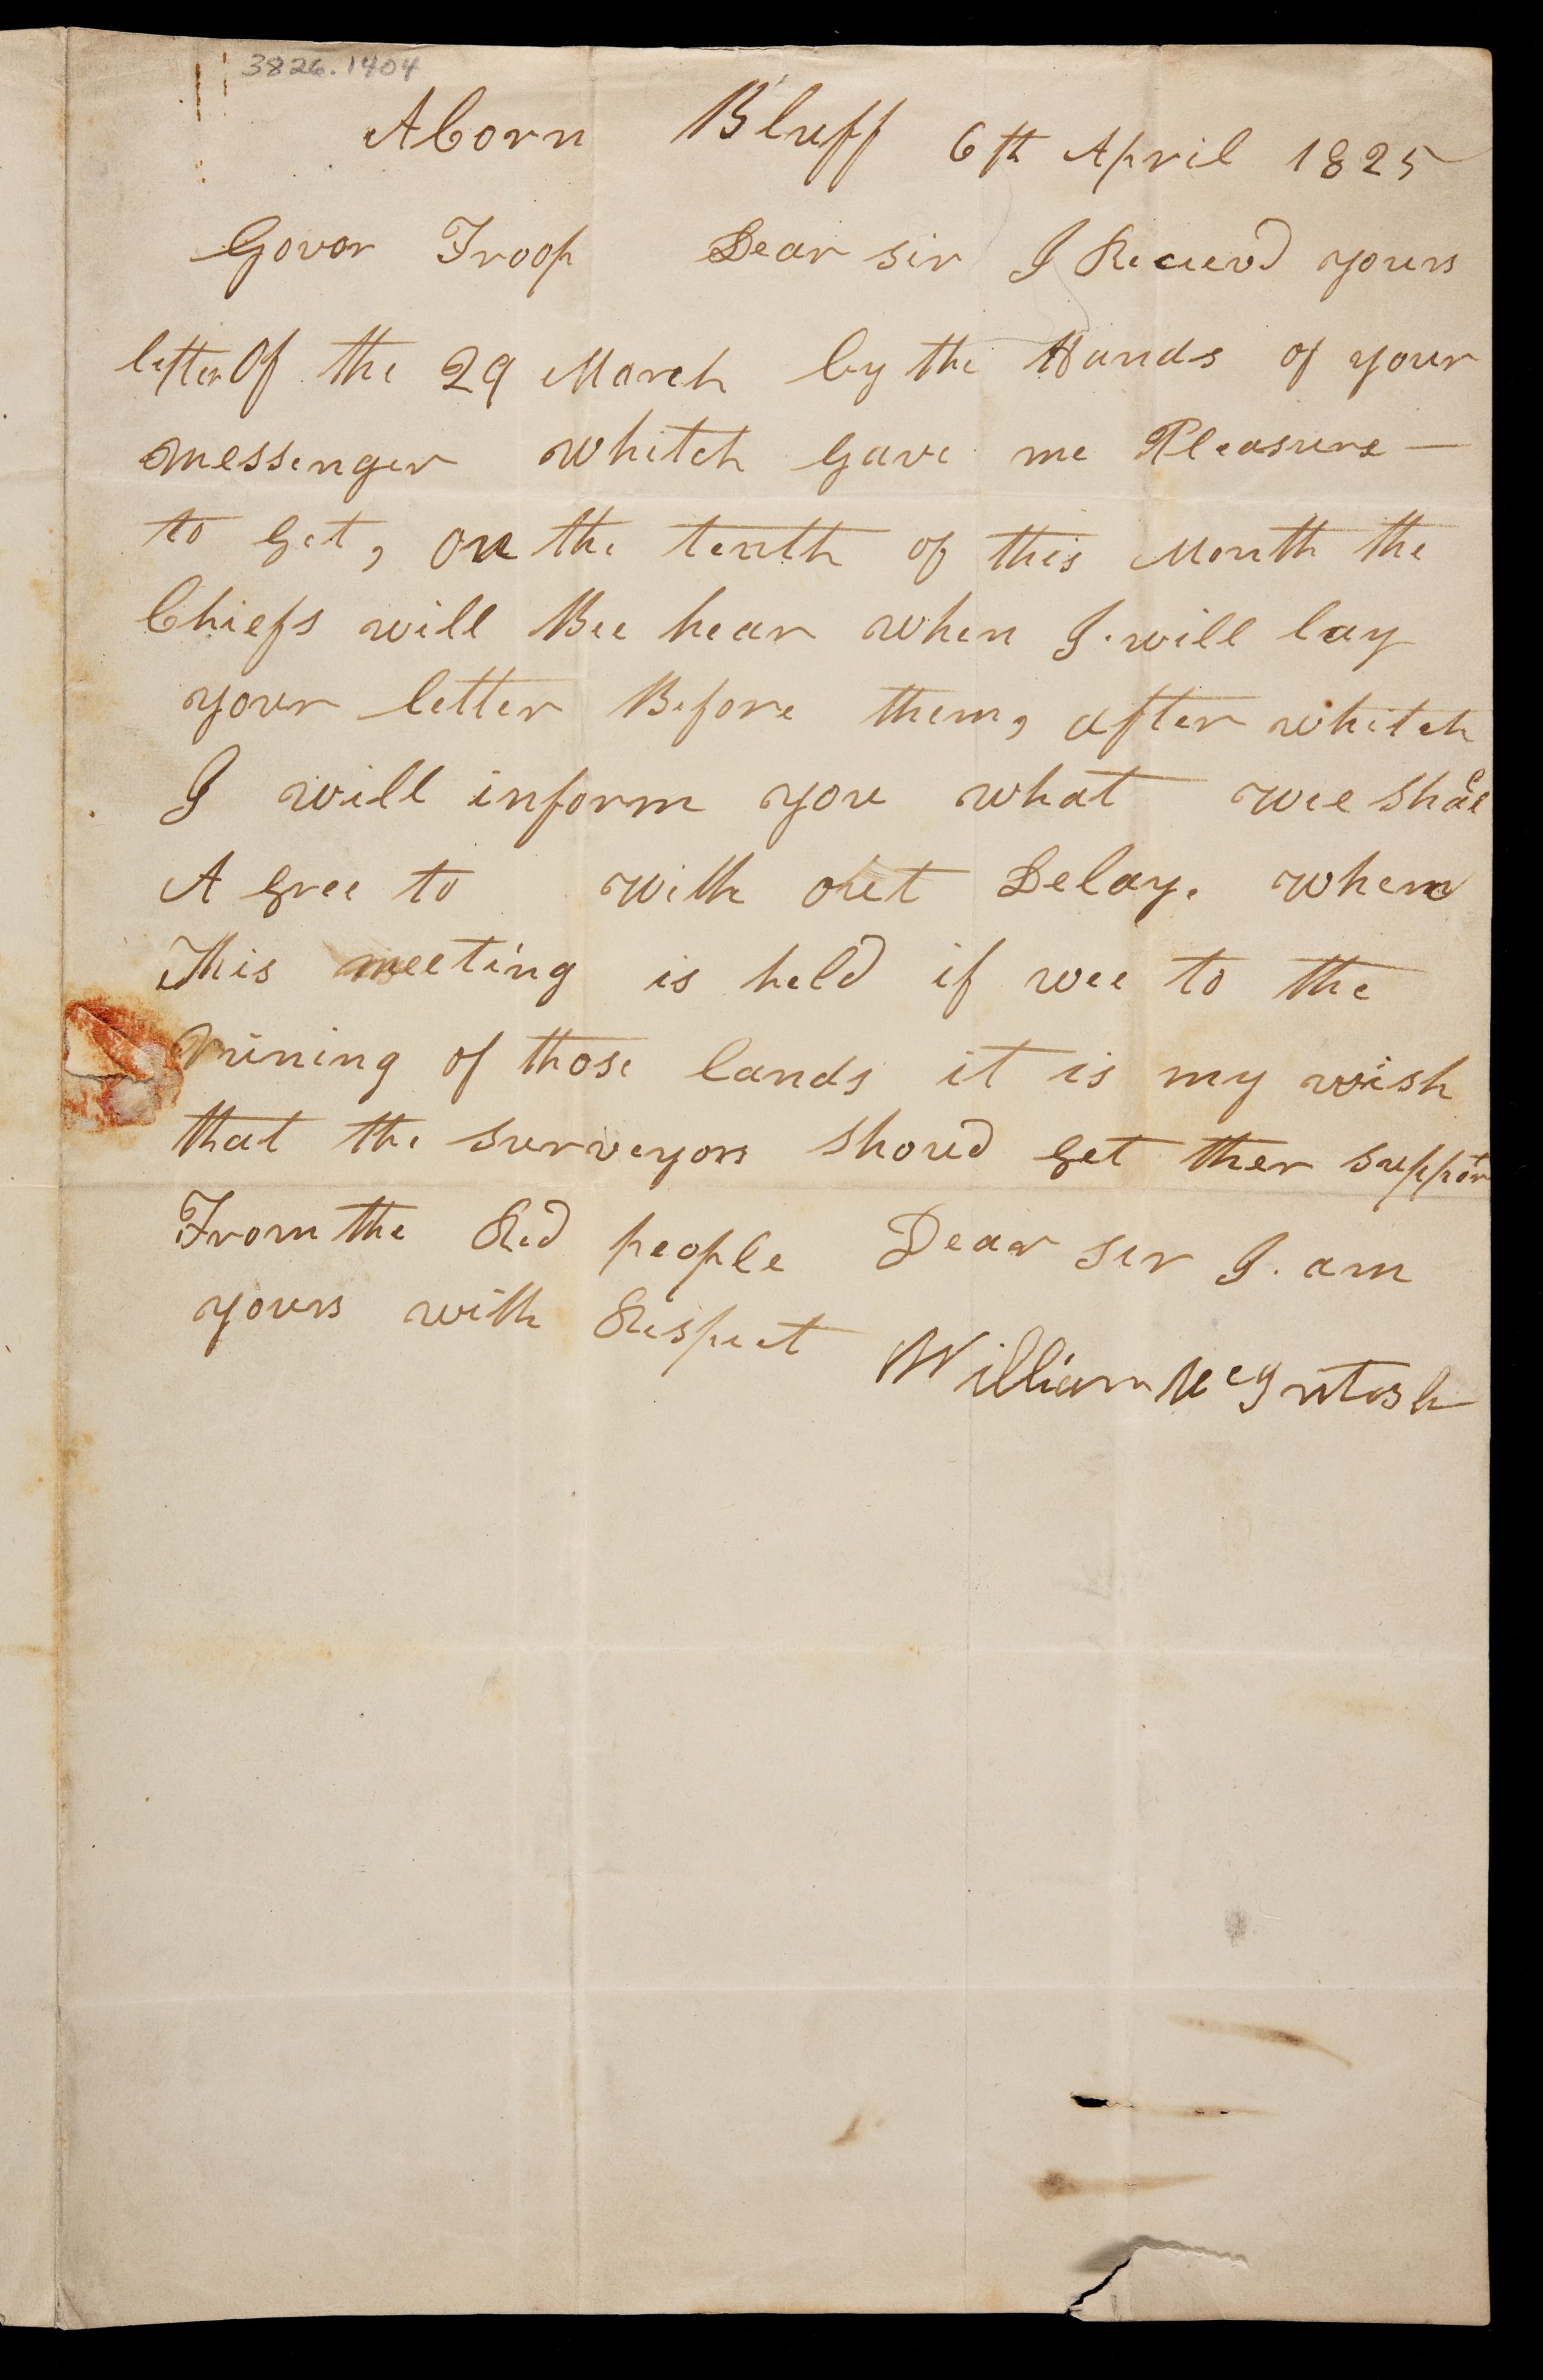 3826.1404
ACorn Bluff 6th April 1825
Govor Troop Dear sir I Recievd yours
letter Of the 29 March by the Hands of your
messenger whitch gave me Pleasure —
to get, on the tenth of this Month the
Chiefs will Bee hear when I. will lay
your letter Before them, after whitch
I will inform you what wee shall
A gree to with out Delay. when
This meeting is held if wee to the
runing of those lands it is my wish
that the surveyors shoud get ther support
From the Red people Dear ser I. am
yours with Respect William McIntosh